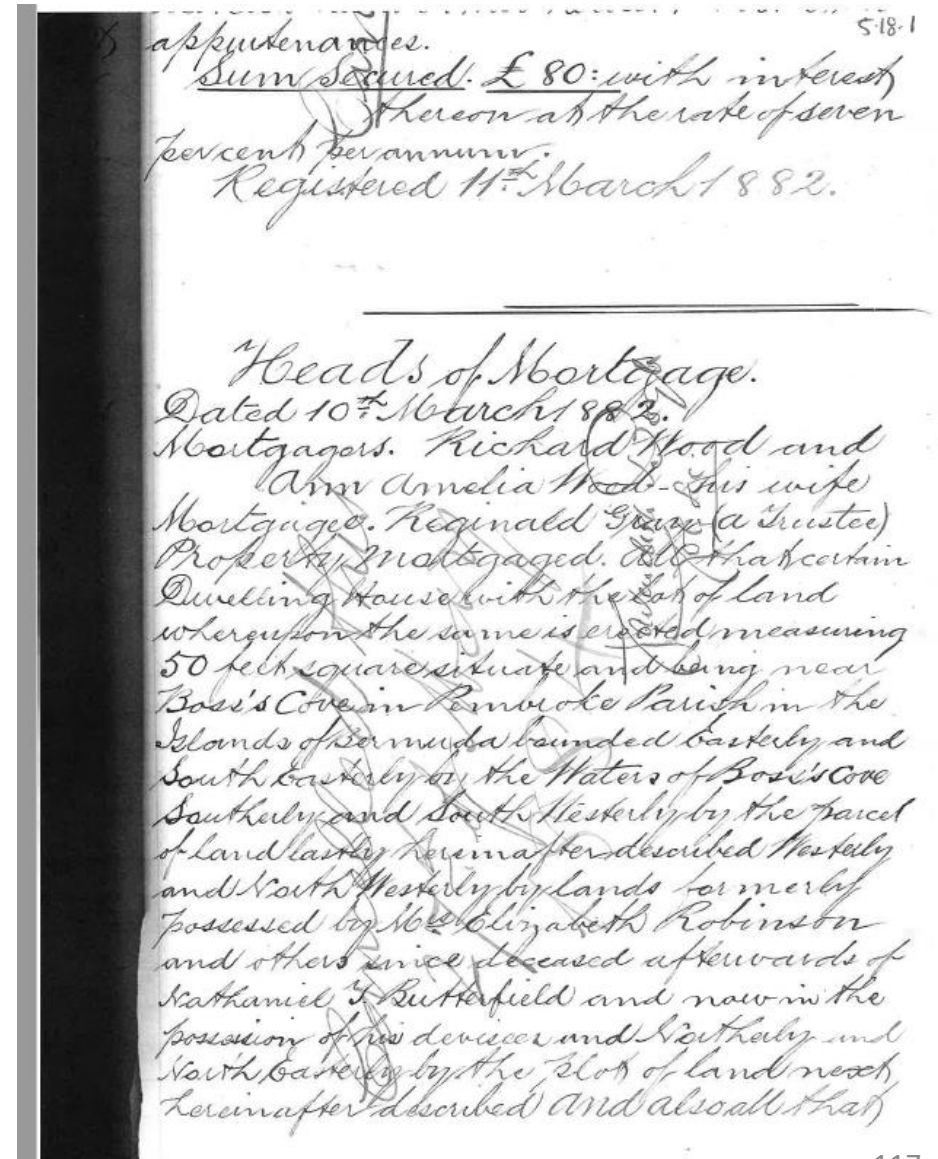 5-18-1
appurtenances.
Sum Secured. £80: with interest
thereon at the rate of seven
per cent per annum.
Registered 11th March 1882.
Heads of Mortgage.
Dated 10th March 1882.
Mortgagors. Richard Wood and
Ann Amelia Wood his wife
Mortgagee. Reginald Gray (a Trustee)
Property Mortgaged. All that certain
Dwelling House with the lot of land
whereupon the same is erected measuring
50 feet square situate and being near
Boss's Cove in Pembroke Parish in the
Islands of Bermuda bounded Easterly and
South Easterly by the Waters of Boss's Cove
Southerly and South Westerly by the parcel
of land lastly hereinafter described Westerly
and North Westerly by lands formerly
possessed by Mrs Elizabeth Robinson
and others since deceased afterwards of
Nathaniel T. Butterfield and now in the
possession of his devisees and Northerly and
North Easterly by the plot of land next
hereinafter described And also all that
117